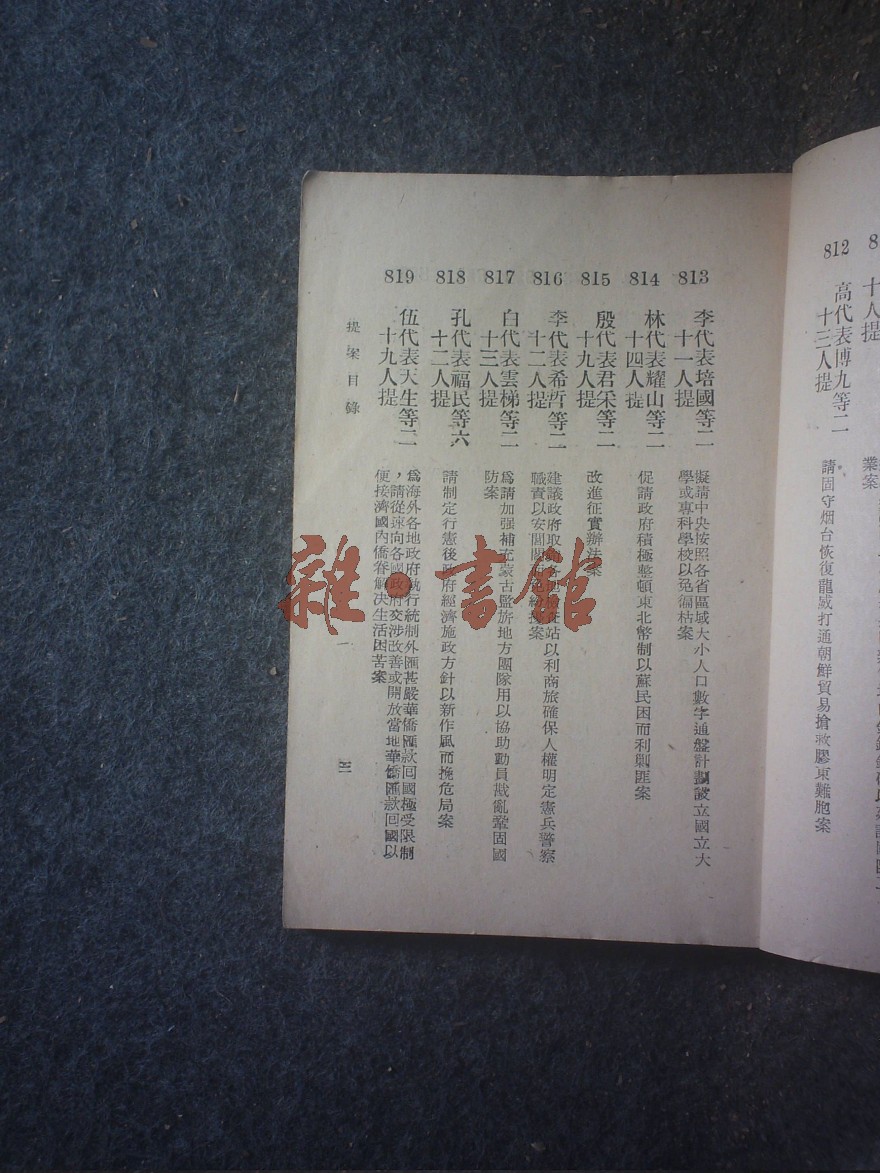 812
高代表博九等二
十三人提
請固守烟台恢復龍威打通朝鮮貿易搶救膠東難胞案
813
李代表培國等二
十一人提
擬請中央按照各省區域大小人口數字通盤計劃設立國立大
學或專科學校以免偏枯案
814
林代表耀山等二
十四人提
促請政府積極整頓東北幣制以蘇民困而利剿匪案
815
殷代表君采等二
十九人提
改進征實辦法案
816
李代表希哲等二
十二人提
建議政府取銷各地檢查站以利商旅確保人權明定憲兵警察
職責以安閭閻而免紛擾案
817
白代表雲梯等二
十三人提
爲請加强補充蒙古盟旂地方團隊用以協助動員戡亂鞏固國
防案
818
孔代表福民等六
十二人提
請制定行憲後政府經濟施政方針以新作風而挽危局案
819
伍代表天生等二
十九人提
爲海外各地政府執行統制外匯甚嚴華僑匯款回國極受限制
，請從速向各國政府交涉改善或開放當地華僑匯款回國以
便接濟國內僑眷解決生活困苦案
提案目錄
雜·書館